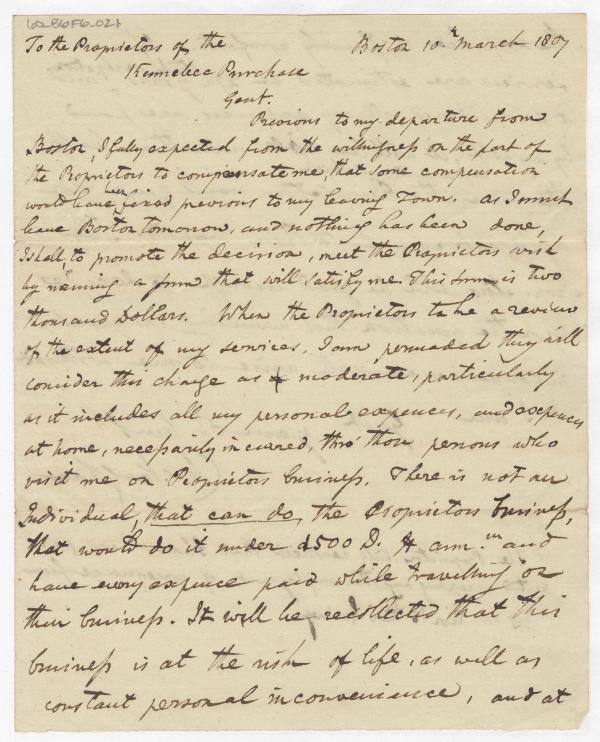 To the Proprietors of the Boston 10.th March 1807
Kennebec Purchase
Gent.
Previous to my departure from
Boston, I fully expected from the willingness on the part of
the Proprietors to compensate me, that some compensation
would have been fixed previous to my leaving Town. as I must
leave Boston tomorrow, and nothing has been done,
I shall, to promote the decision, meet the Proprietors wish
by naming a sum that will satisfy me. This sum is two
thousand Dollars. When the Proprietors take a review
of the extent of my services, I am persuaded they will
consider this charge as moderate, particularly
as it includes all my personal expences, and expences
at home, necessarily incurred, thro' those persons who
visit me on Proprietors business. There is not an
Individual, that can do, the Proprietors business,
that would do it under 1500 D. ⅌ ann.um and
have every expence paid while travelling on
their business. It will be recollected that this
business is at the risk of life, as well as
constant personal inconvenience, and at